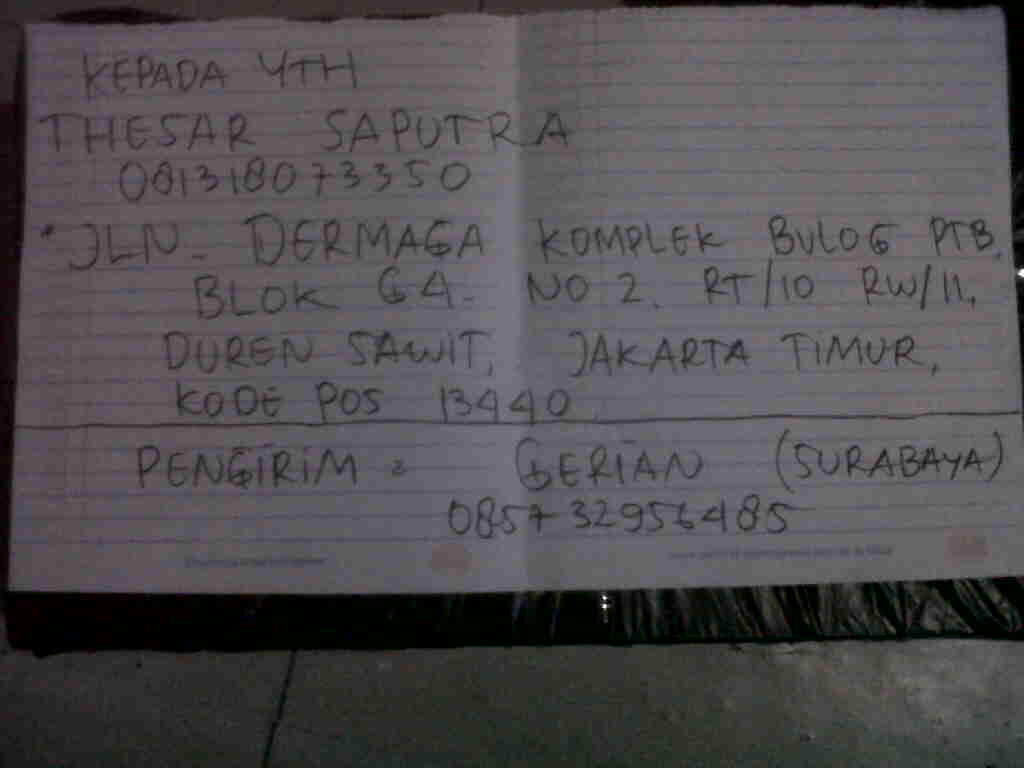 KEPADA YTH
THESAR SAPUTRA
081318073350
JLN. DERMAGA KOMPLEK BULOG PTB.
BLOK G4. NO 2. RT/10 RW/11,
DUREN SAWIT, JAKARTA TIMUR,
KODE POS 13440
PENGIRIM = GERIAN (SURABAYA)
085732956485